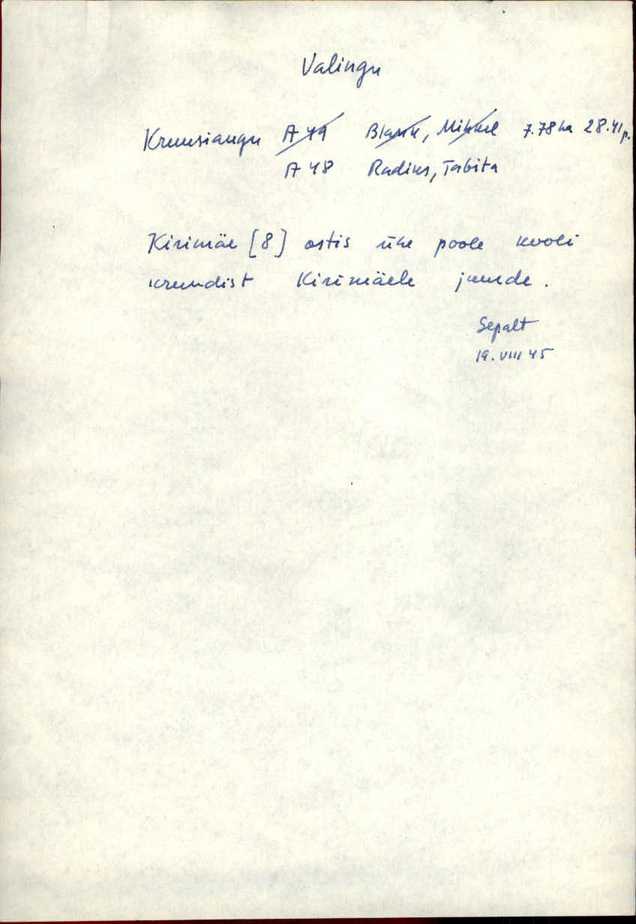 Valingu
Kruusiaugu A 49 Blank, Mihkel 7.78 ha 28.41 p.
A 48 Radius, Tabita
Kirimäe [8] ostis ühe poole kooli
krundist Kirimäele juurde.
Sepalt
19. VIII 45